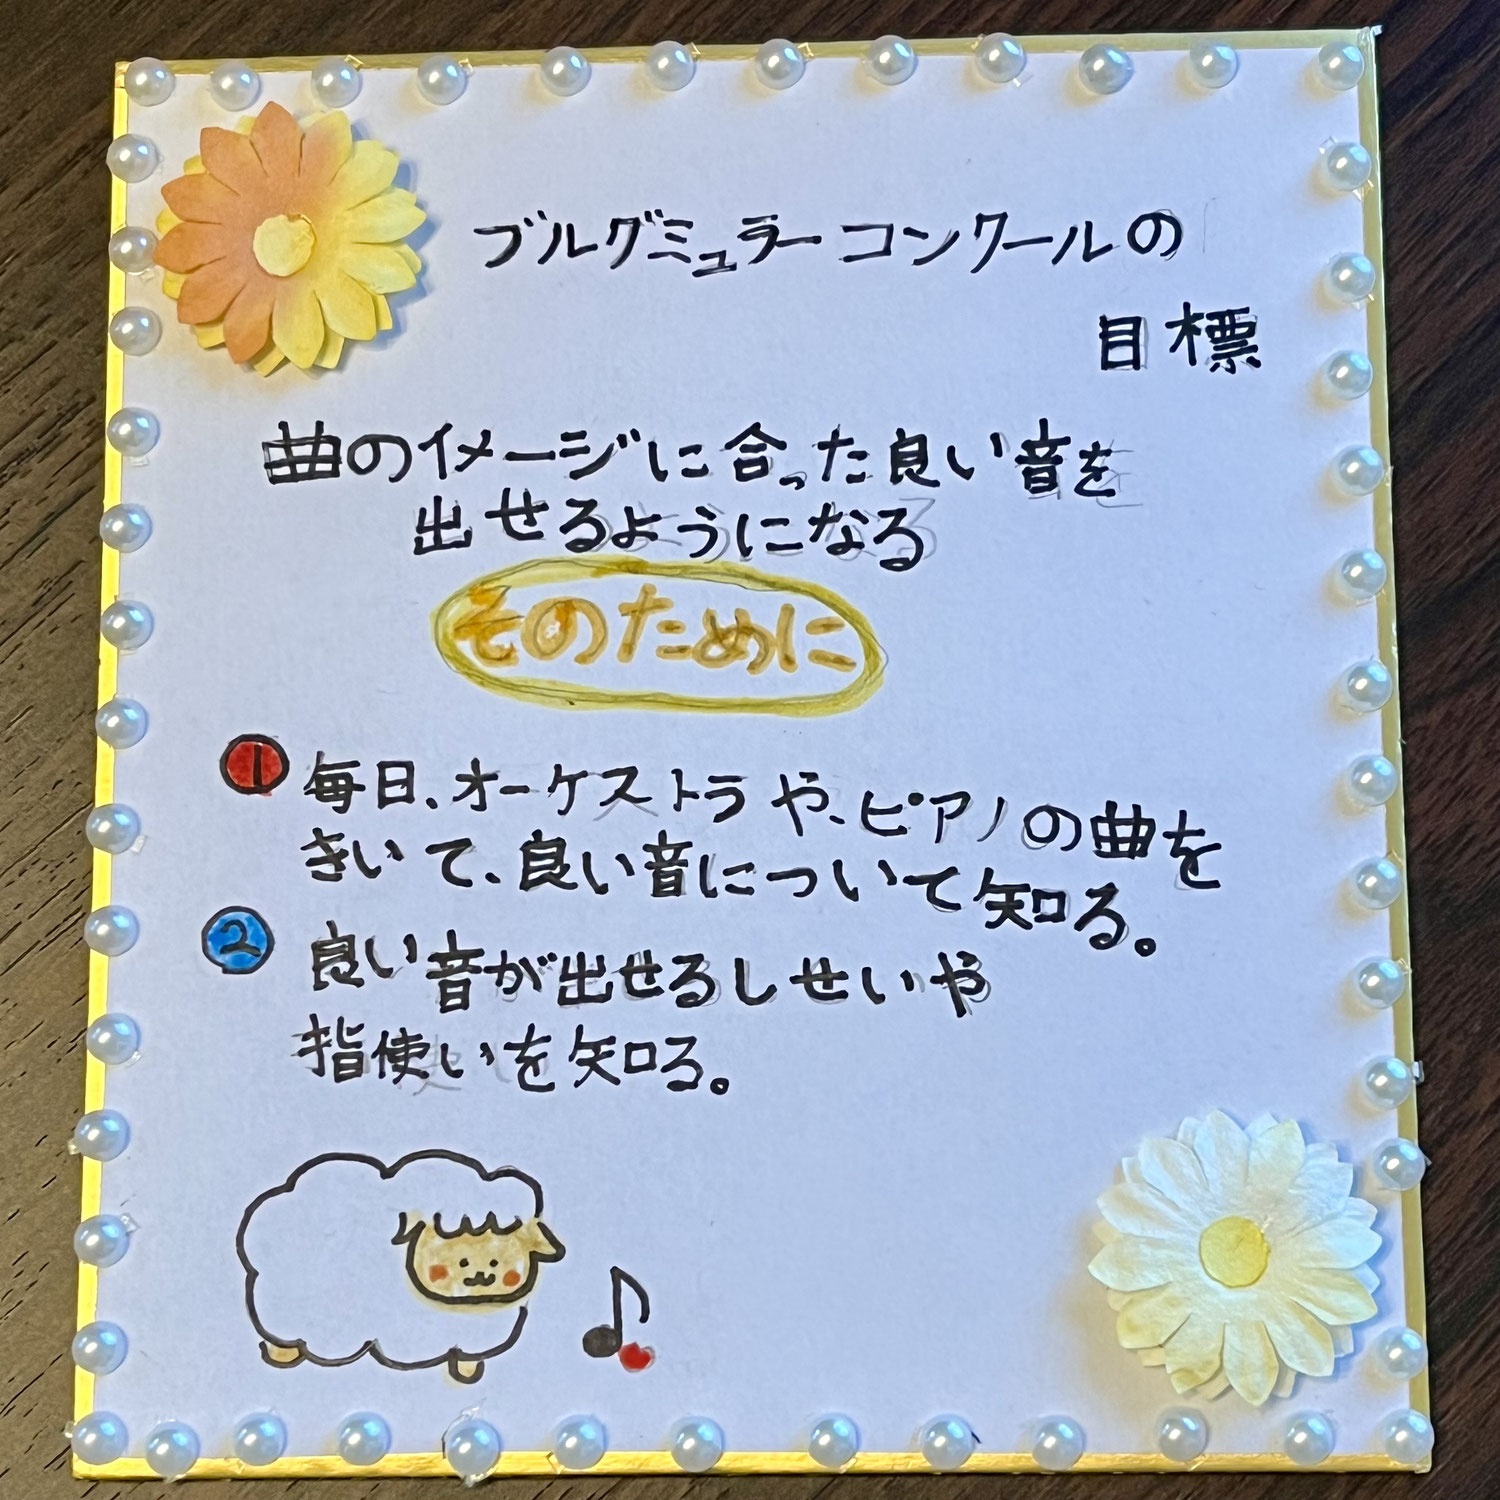 ブルグミュラーコンクールの
目標
曲のイメージに合った良い音を
出せるようになる
そのために
1 毎日、オーケストラや、ピアノの曲を
きいて、良い音について知る。
2 良い音が出せるしせいや
指使いを知る。